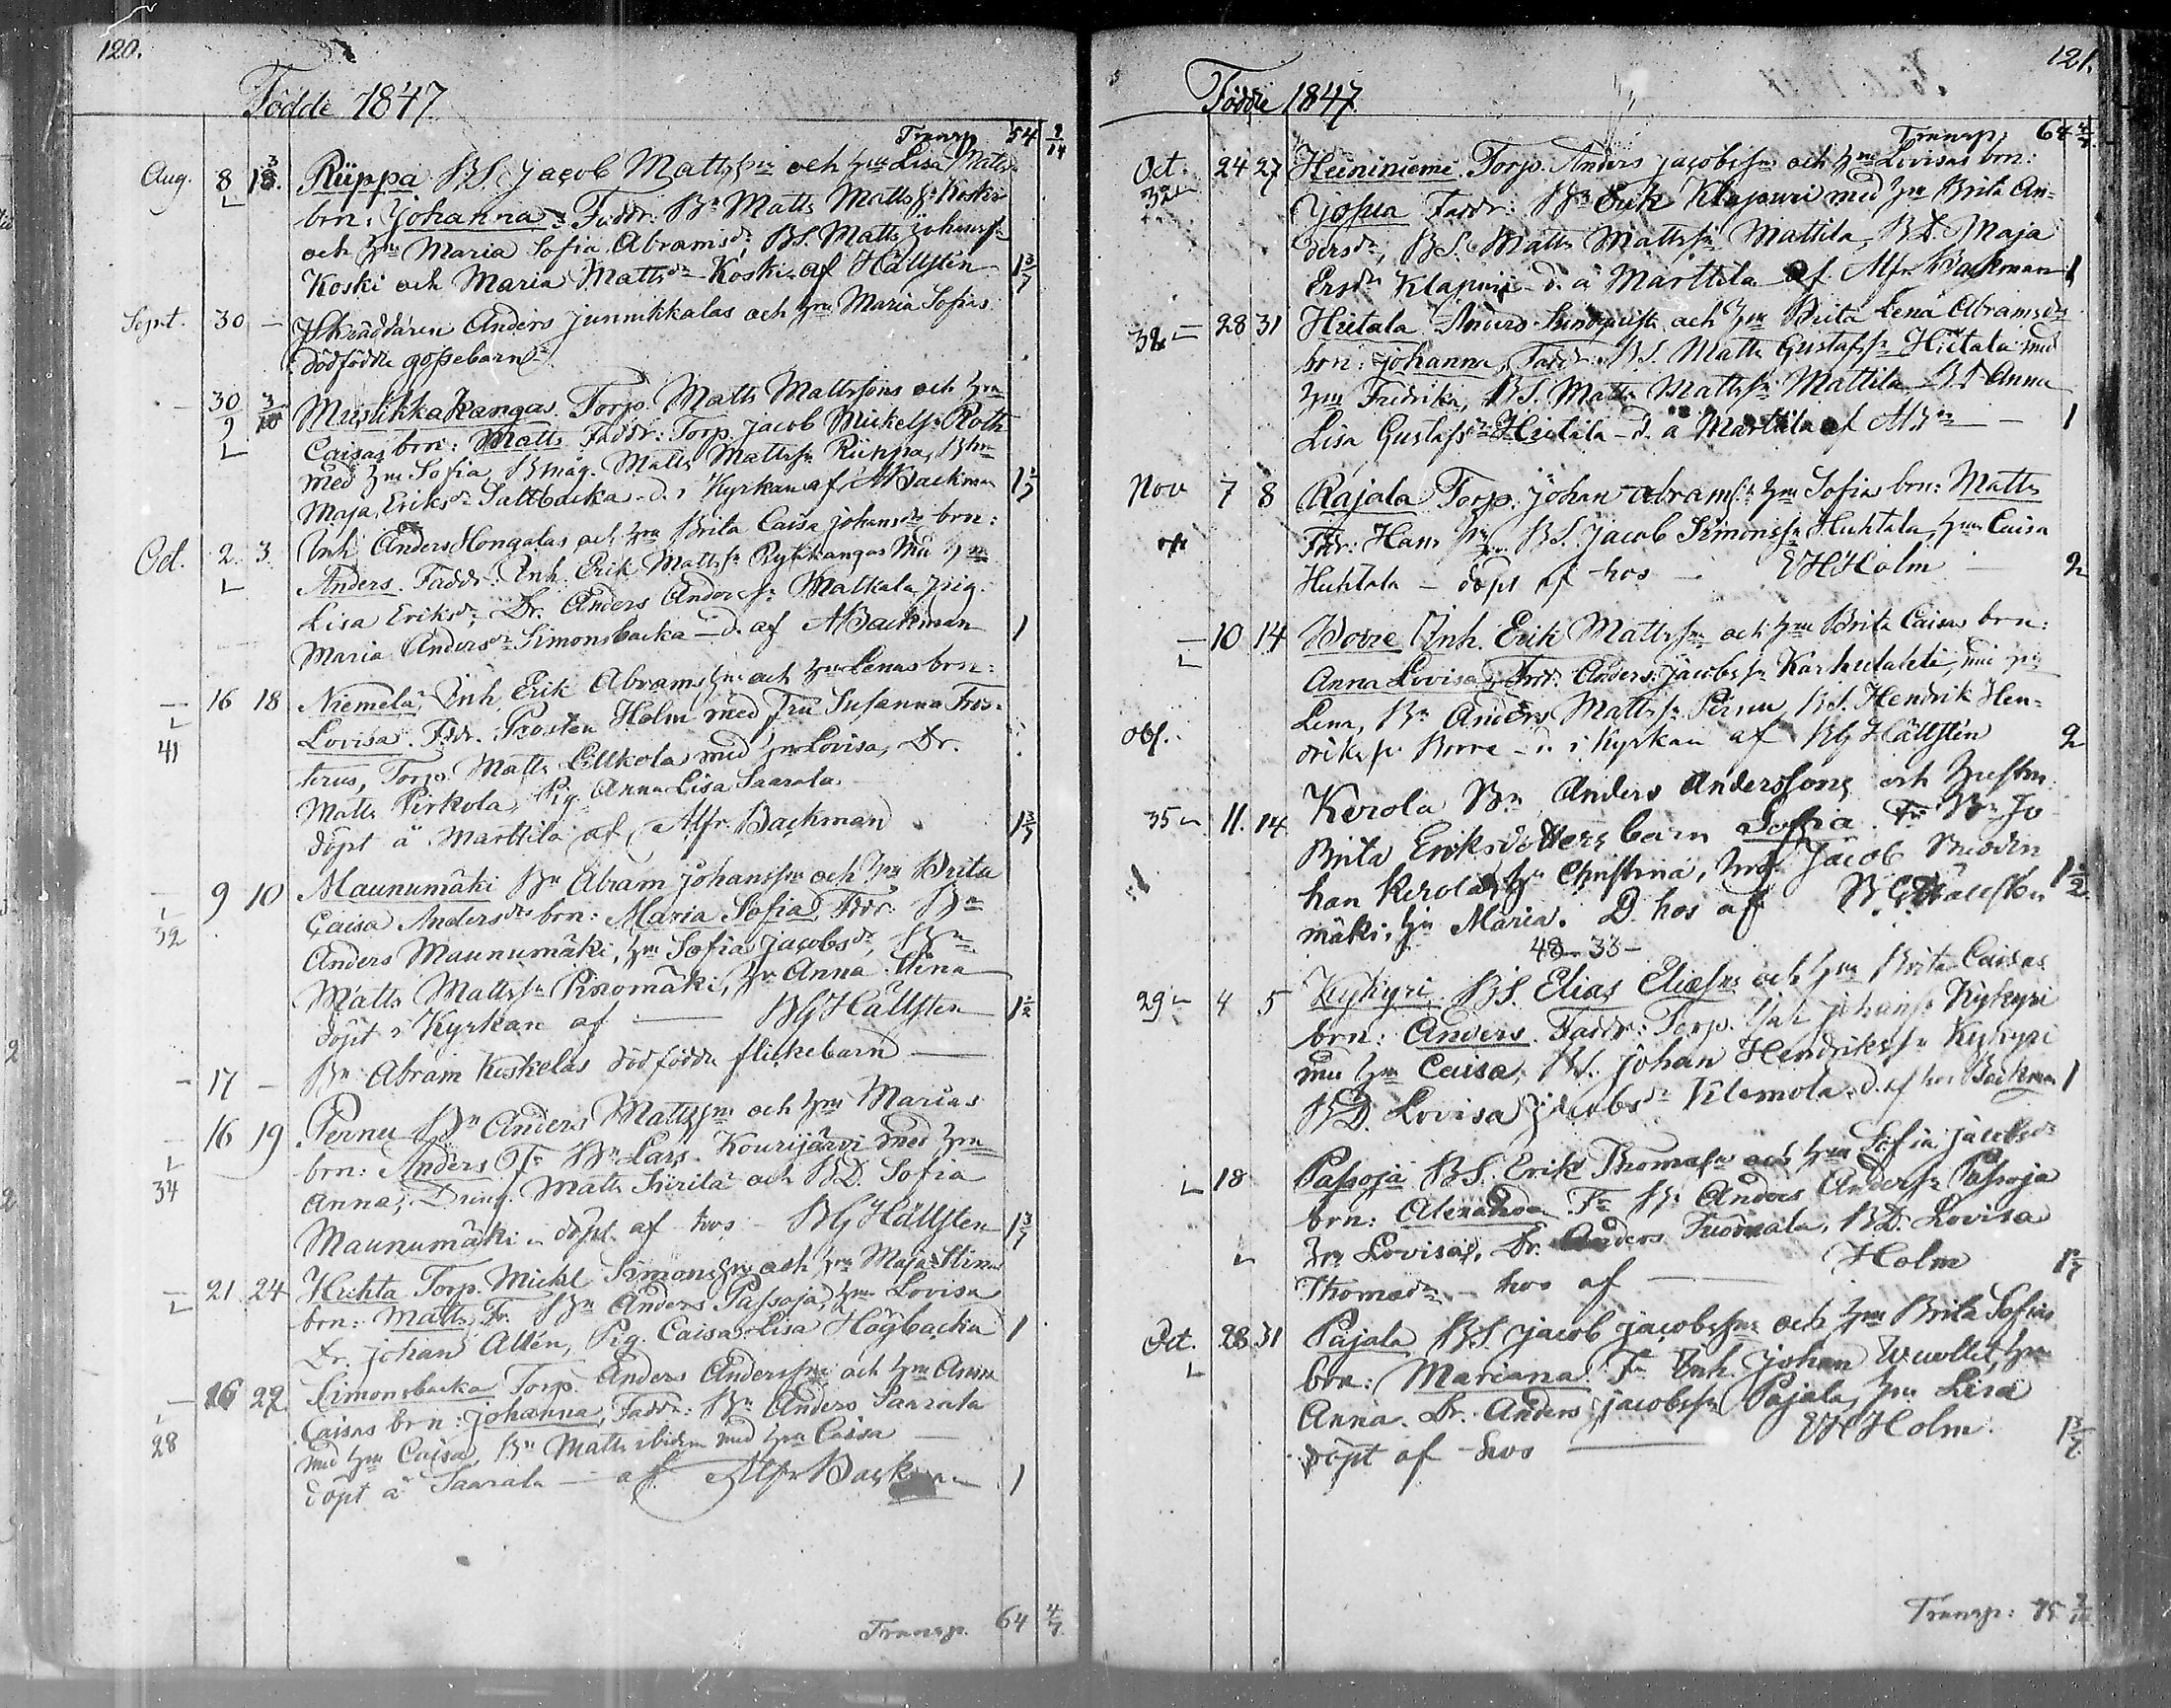 120.
Födde 1847.
Transp. 54 9/14
Aug. 8 18. Riippa BS. Jacob Mattss:n och h:u Lisa Matts
brn: Johanna. Faddr: B:n Matts Mattss:n Koski
och h:u Maria Sofia Abramsd:r, BS. Matts Johanss:n
Koski och Maria Mattsd:r Koski af Hällsten 1 3/7
Sept. 30 — Skräddaren Anders Junnikkalas och h:u Maria Sofias
dödfödde gossebarn
— 30 3/10 Mustikkakangas Torp. Matts Mattssons och h:u
Caisas brn: Matts Faddr: Torp. Jacob Mickelss:n Roth
med h:u Sofia, Bmåg. Matts Mattss:n Riippa,
Maja Eriksd:r Saltbacka - d. i Kyrkan af ABackman
Oct. 2. 3. Inh. Anders Hongalas och h:u Brita Caisa Johansd:rs brn:
Anders. Faddr: Inh. Erik Mattss:n Rytikangas
Lisa Eriksd:r, Dr. Anders Anderss:n Matkala, pig.
Maria Andersd:r Simonsbacka - d. af ABackman 1
— 16 18 Niemelä, Inh. Erik Abramss:ns och h:u Lenas brn:
41 Lovisa. Fdr. Prosten Holm med Fru Susanna Fros-
terus, Torp. Matts Lillkola med h:u Lovisa, Dr.
Matts Pirkola, Pig. Anna Lisa Saarala
döpt å Marttila af Alfr. Backman 1 3/7
— 9 10 Maunumäki B:n Abram Johanss:ns och h:u Brita
32 Caisa Andersd:rs brn: Maria Sofia, Fddr: B:n
Anders Maunumäki, h:u Sofia Jacobsd:r, B:n
Matts Mattss:n Pinomäki, h:u Anna Stina
döpt i Kyrkan af — BG Hällsten 1 1/2
— 17 — B:n Abram Koskelas dödfödde flickebarn —
— 16 19 Pernu B:n Anders Mattss:ns och h:u Marias
34 brn: Anders F:r B:n Lars Kourijärvi med h:u
Anna, Dräng. Matts Siirilä och BD. Sofia
Maunumäki - döpt af hos - BG Hällsten 1 3/7
— 21. 24 Huhta Torp. Mickl Simonss:ns och h:u Maja Stinas
brn: Matts, Fr. B:n Anders Passoja, h:u Lovisa
Dr. Johan Allén, Pig. Caisa Lisa Högbacka 1
— 16 22. Simonsbacka Torp. Anders Anderss:ns och h:u Anna
28 Caisas brn: Johanna, Faddr: B:n Anders Saarala
med h:u Caisa, B:n Matts ibidem med h:u Caisa —
döpt å Saarala - af Alfr Backman 1
Transp. 64 4/7
121.
Födde 1847.
Transp: 64 4/7
Oct. 24 27 Heininiemi Torp. Anders Jacobss:ns och h:u Lovisas brn:
32 Josua Faddr: B:n Erik Klapuri med h:u Brita An-
dersd:r, BS. Matts Mattss:n Mattila, BD. Maja
Ersd:r Klapuri - d. å Marttila af Alfr. Backman 1
32 — 28 31 Hietala Anders Sundqvists och h:u Brita Lena Abramsd:rs
brn: Johanna, Faddr: BS. Matts Gustafss:n Hietala med
h:u Fredrika, BS. Matts Mattss:n Mattila BD Anna
Lisa Gustafsd:r Hietala - d. å Marttila af ABn — 1
Nov 7 8 Rajala Torp. Johan Abramss:n h:u Sofias brn: Matts
Fdr: Hans BS. Jacob Simonss:n Huhtala, h:u Caisa
Huhtala - döpt af hos — EHHolm — 2
— 10 14 Worre Inh. Erik Mattss:ns och h:u Brita Caisas brn:
Anna Lovisa, Fdr. Anders Jacobss:n Karhulahti, med
Lena, B:n Anders Mattss:n Pernu, BS. Hendrik Hen-
obs. driks:n Borre - d. i Kyrkan af BG Hällsten 2
35 11. 14. Kerola B:n Anders Anderssons och hustru
Brita Eriksdotters barn Sofia. F:r B:n Jo
han Kerola, h:u Christina, Jacob
mäki, h:u Maria. D. hos af BG Hällsten 1 1/2
48 33 —
29 4 5 Kykyri. BS. Elias Eliass:ns och h:u Brita Caisas
brn: Anders. Faddr: Torp. Johanss:n Kykyri
med h:u Caisa, BS. Johan Hendrikss:n Kykyri
BD. Lovisa Jacobsd:r Vilemola. d. af hos Backman 1
18 Passoja BS. Erik Thomass:ns och h:u Sofia Jacobsd:rs
brn: Alexandra F:r B:n Anders Anderss:n Passoja
h:u Lovisa, Dr. Anders Tuomala, BD. Lovisa
Thomasd:r - hos af — Holm
Oct. 28 31 Pajala BS. Jacob Jacobss:ns och h:u Brita Sofias
brn: Mariana. F:r Inh. Johan Wuollet, h:u
Anna. Dr. Anders Jacobss:n Pajala, h:u Lisa
döpt af hos — EHHolm. 1 3/7
Transp: 75